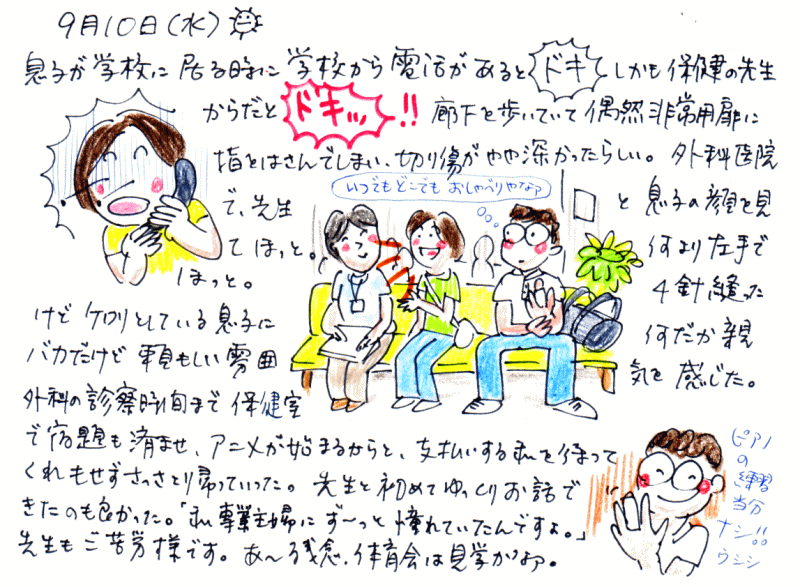 9月10日(水)
息子が学校に居る時に学校から電話があるとドキしかも保健の先生
からだとドキッ!!廊下を歩いていて偶然非常用扉に
指をはさんでしまい、切り傷がやや深かったらしい。外科医院
いつでもどこでもおしゃべりやなァ
で、先生と息子の顔を見
てほっと。何より左手で
ほっと。4針縫った
けどケロリとしている息子に何だか親
バカだけど頼もしい雰囲気を感じた。
外科の診察時間まで保健室
で宿題も済ませ、アニメが始まるからと、支払いする私を待って
くれもせずさっさとり帰っていった。先生と初めてゆっくりお話で
きたのも良かった。「私専業主婦にず〜っと憧れていたんですよ。」
先生もご苦労様です。あ〜残念、体育会は見学かなァ。
ピアノ
の
練習
当分
ナシ!!
ウシシ